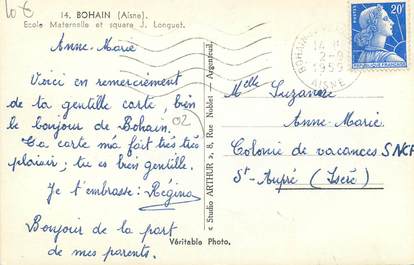 10 €
14. BOHAIN (Aisne).
Ecole Maternelle et square J. Longuet.
Anne-Marie
Voici en remerciement
de ta gentille carte, bien
le bonjour de Bohain.
Ta carte m'a fait très très
plaisir; tu es bien gentille.
Je t'embrasse: Régina
Bonjour de la part
de mes parents.
02
Véritable Photo.
« Studio ARTHUR », 8, Rue Noblet - Argenteuil.
BOHAIN
1955
AISNE
20F
POSTES
Melle Suzanne
Anne-Marie
Colonie de vacances SNCF
St-Aupré (Isère)